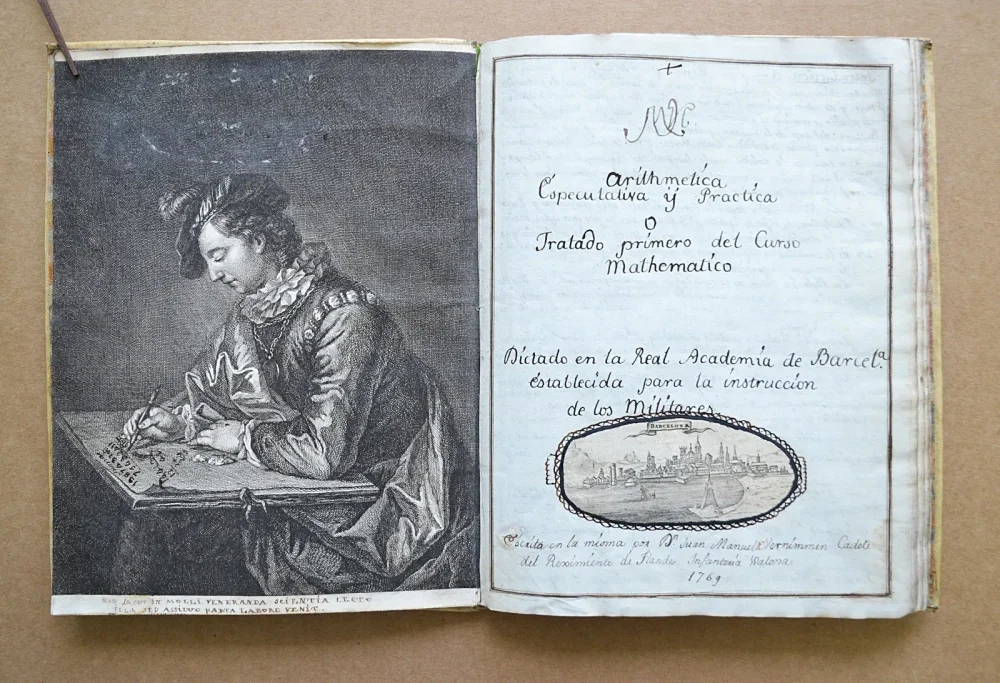 NON JACET IN MOLLI VENERANDA SCIENTIA LECTO
ILLA SED ASSIDUO PARTA LABORE VENIT.
Arithmetica
Especulativa ÿ Practica
O
Tratado primero del Curso
Mathematico
Dictado en la Real Academia de Barcel.ª
establecida para la instruccion
de los Militares
BARCELONA
Escrita en la misma por Dn Juan Manuel Vernimmen Cadete
del Reximiento de Flandes Infanteria Walona
1769